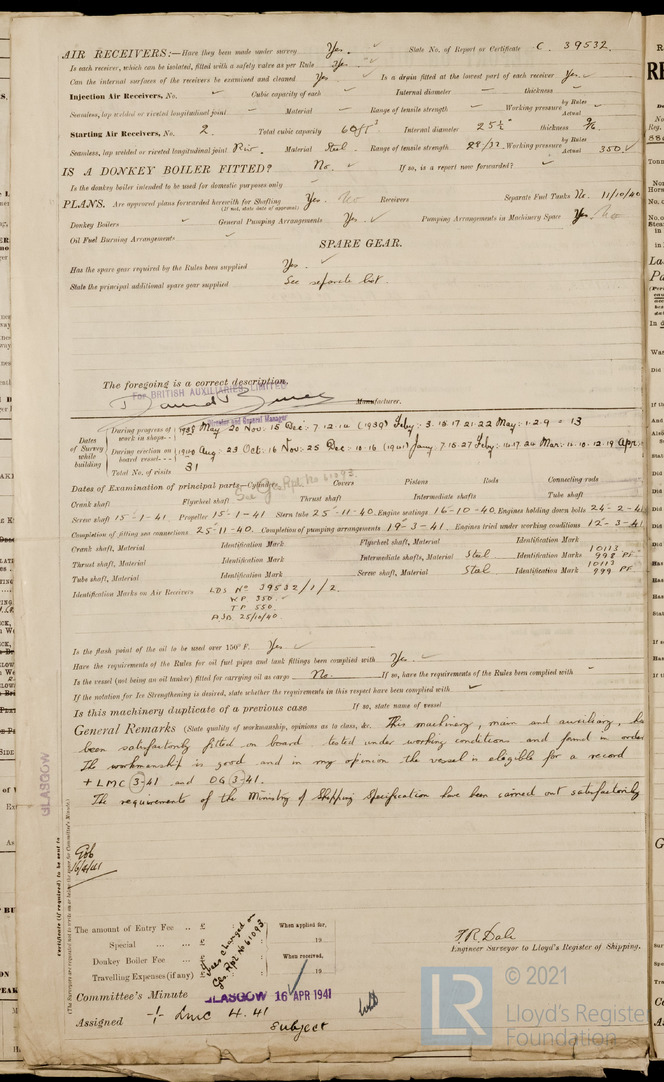 AIR RECEIVERS:—Have they been made under survey Yes. State No. of Report or Certificate C. 39532.
Is each receiver, which can be isolated, fitted with a safety valve as per Rule Yes
Can the internal surfaces of the receivers be examined and cleaned Yes Is a drain fitted at the lowest part of each receiver Yes
Injection Air Receivers, No. Cubic capacity of each Internal diameter thickness
Seamless, lap welded or riveted longitudinal joint Material Range of tensile strength Working pressure by Rules Actual
Starting Air Receivers, No. 2. Total cubic capacity 60 ft³ Internal diameter 25½" thickness 9/16.
Seamless, lap welded or riveted longitudinal joint Riv. Material Steel. Range of tensile strength 28/32. Working pressure by Rules Actual 350
IS A DONKEY BOILER FITTED? No. If so, is a report now forwarded?
Is the donkey boiler intended to be used for domestic purposes only
PLANS. Are approved plans forwarded herewith for Shafting Yes. No Receivers Separate Fuel Tanks No. 11/10/40
(If not, state date of approval)
Donkey Boilers General Pumping Arrangements Yes Pumping Arrangements in Machinery Space Yes. No
Oil Fuel Burning Arrangements
SPARE GEAR.
Has the spare gear required by the Rules been supplied Yes.
State the principal additional spare gear supplied See separate list.
The foregoing is a correct description,
For BRITISH AUXILIARIES LIMITED
Manufacturer.
Director and General Manager
Dates of Survey while building
During progress of work in shops - - 1938 May: 20 Nov: 15 Dec: 7.12.14 (1939) Feby: 3.15.17.21.22 May: 1.2.9 = 13
During erection on board vessel - - - 1940 Aug: 23 Oct: 16 Nov: 25 Dec: 10.16 (1941) Jany: 7.15.27 Feby: 10.17.24 Mar: 11.10.12.19 Apr
Total No. of visits 31
Dates of Examination of principal parts—Cylinders Covers Pistons Rods Connecting rods
See Gls. Rpt. No 61093.
Crank shaft Flywheel shaft Thrust shaft Intermediate shafts Tube shaft
Screw shaft 15-1-41. Propeller 15-1-41 Stern tube 25-11-40. Engine seatings 16-10-40. Engines holding down bolts 24-2-41
Completion of fitting sea connections 25-11-40. Completion of pumping arrangements 19-3-41. Engines tried under working conditions 12-3-41
Crank shaft, Material Identification Mark Flywheel shaft, Material Identification Mark
Thrust shaft, Material Identification Mark Intermediate shafts, Material Steel Identification Marks 10113 998 PF
Tube shaft, Material Identification Mark Screw shaft, Material Steel Identification Mark 10113 999 PF
Identification Marks on Air Receivers LDS No 39532/1/2.
W.P. 350
T.P. 550.
25/10/40.
Is the flash point of the oil to be used over 150° F. Yes
Have the requirements of the Rules for oil fuel pipes and tank fittings been complied with Yes
Is the vessel (not being an oil tanker) fitted for carrying oil as cargo No. If so, have the requirements of the Rules been complied with
If the notation for Ice Strengthening is desired, state whether the requirements in this respect have been complied with
Is this machinery duplicate of a previous case If so, state name of vessel
General Remarks (State quality of workmanship, opinions as to class, &c. This machinery, main and auxiliary, ha
been satisfactorily fitted on board, tested under working conditions and found in order
The workmanship is good and in my opinion the vessel is eligible for a record
+ LMC 3-41 and OG 3-41.
The requirements of the Ministry of Shipping Specification have been carried out satisfactorily
GLASGOW
16/4/41
Certificate (if required) to be sent to
The amount of Entry Fee .. £ : : When applied for,
Special ... ... £ : : 19
Donkey Boiler Fee ... £ : : When received,
Travelling Expenses (if any) £ : : 19
Fees charged on
Gls. Rpt. No 61093
F.R. Dale
Engineer Surveyor to Lloyd's Register of Shipping.
Committee's Minute GLASGOW 16 APR 1941
Assigned + LMC 4.41
Subject
LR © 2021
Lloyd's Register
Foundation